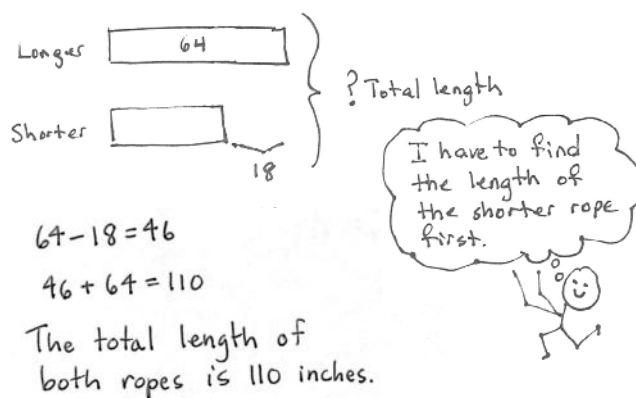 Longer
64
? Total length
Shorter
18
I have to find
the length of
the shorter rope
first.
64-18=46
46+64=110
The total length of
both ropes is 110 inches.